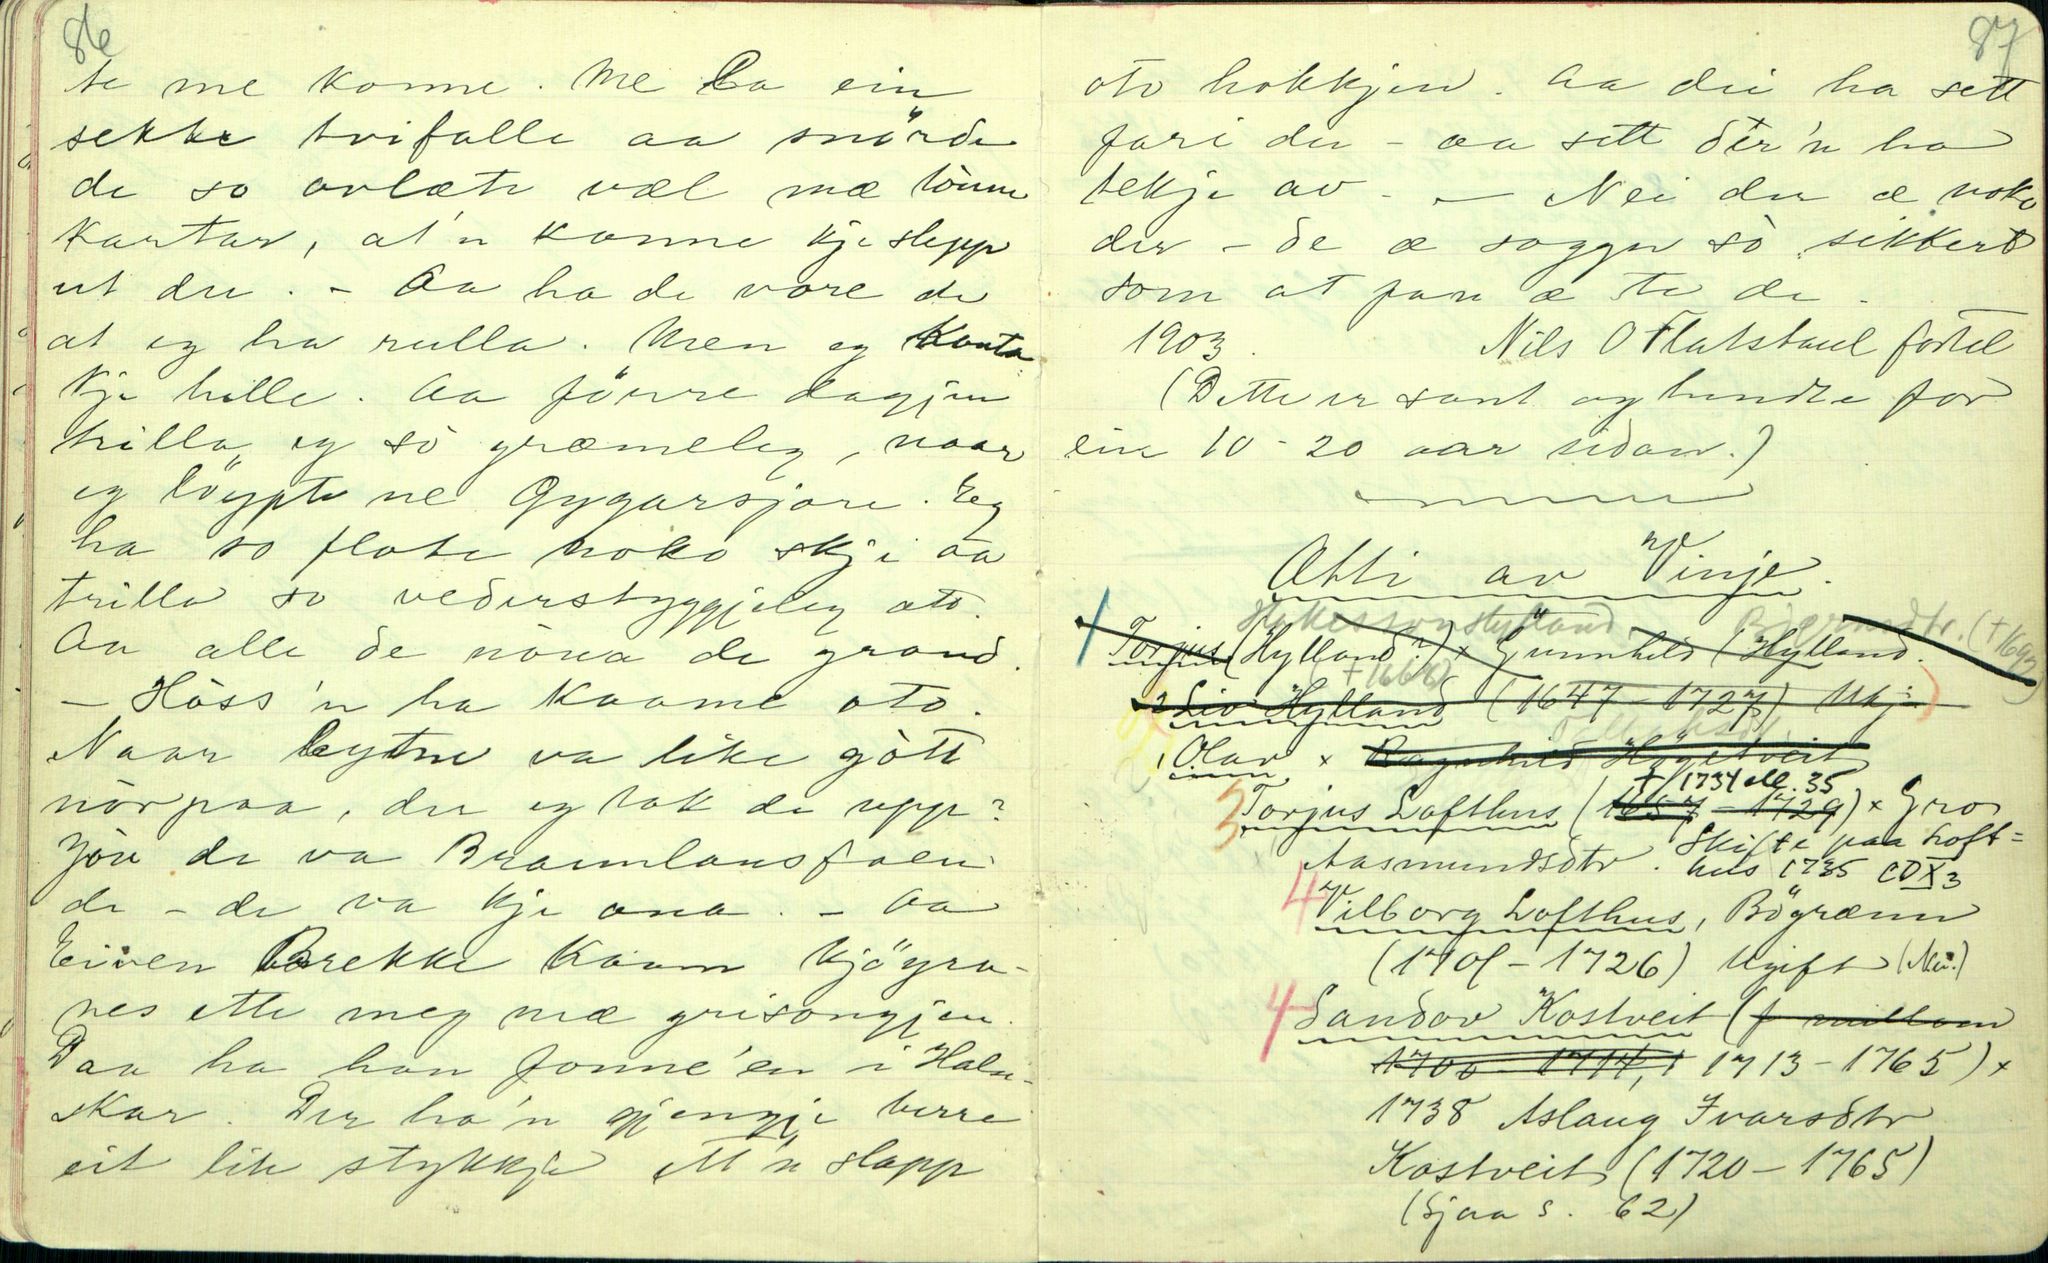 86
te me konne. Me la ein
sekke tvifalle aa snörde
de so ovlæte væl mæ lònne
kartar, at'n konne kje slepp
ut du. – Aa ha de vore de
at eg ha rulla. Men eg
kje helle. Aa jönre dagjen
trilla eg sò græmeleg, naar
eg löypte ne Gygarsjore. Eg
ha so flote noko skji aa
trilla so vederstyggjeleg oto.
Aa alle de nöna de grand.
– Hòss'n ha kaame oto.
Naar lytne va like gòtt
nörpaa, du eg tok de upp?
Jòu de va Braumlansfaen
de – de va kje ana. – Aa
Eiven Brekke kaam kjöyra-
nes ette meg mæ grisongjen.
Daa ha han fonne'en i
skar. Der ha'n gjengje berre
eit lite stykkje ett'n slapp
87
oto hokkjen. Aa dei ha sett
fari du – aa sett dèr'n ha
tekje av. – Nei der æ noko
der – de æ soggu sò sikkert
som at fan æ te de.
1903. Nils O Flatstaul fortel
(Dette er sant og hendte for
ein 10 - 20 aar sidan.)
Ætti av Vinje.
Hylland Bjørnsdtr. (+1693)
1 Torjus (Hylland?) × Gunnhild (Hylland.
2 Liv Hylland (1647 – 1727) Ukj.
Olav × Ragnhild Högetveit
+/1734 ell. 35
3 Torjus Lofthus (1657 – 1729) × Gro
Aasmundsdtr. Skifte paa Loft=
hus 1735 CDX3
4 Vilborg Lofthus, Bögrænn
(1701 – 1726) Ugift (Nei.)
4 Sandov Kostveit (f. millom
1700 – 1714, 1713 – 1765) ×
1738 Aslaug Ivarsdtr
Kostveit (1720 – 1765)
(Sjaa s. 62)